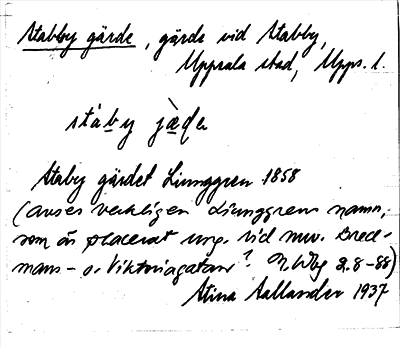 Stabby gärde, gärde vid Stabby,
Uppsala stad, Upps. l.
stáby jæ̀da
Staby gärdet Ljunggren 1858
(avses verkligen Ljunggrens namn,
som är placerat ung. vid nuv. Bred-
mans- o. Viktoriagatan? N. Wbg 2.8-88)
Stina Aallander 1937